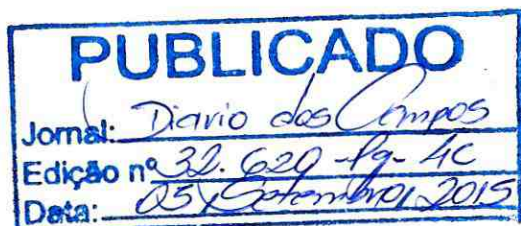 PUBLICADO
Jornal: Diario dos Campos
Edição nº 32.620 -Pg- 4C
Data: 05/Setembro/2015